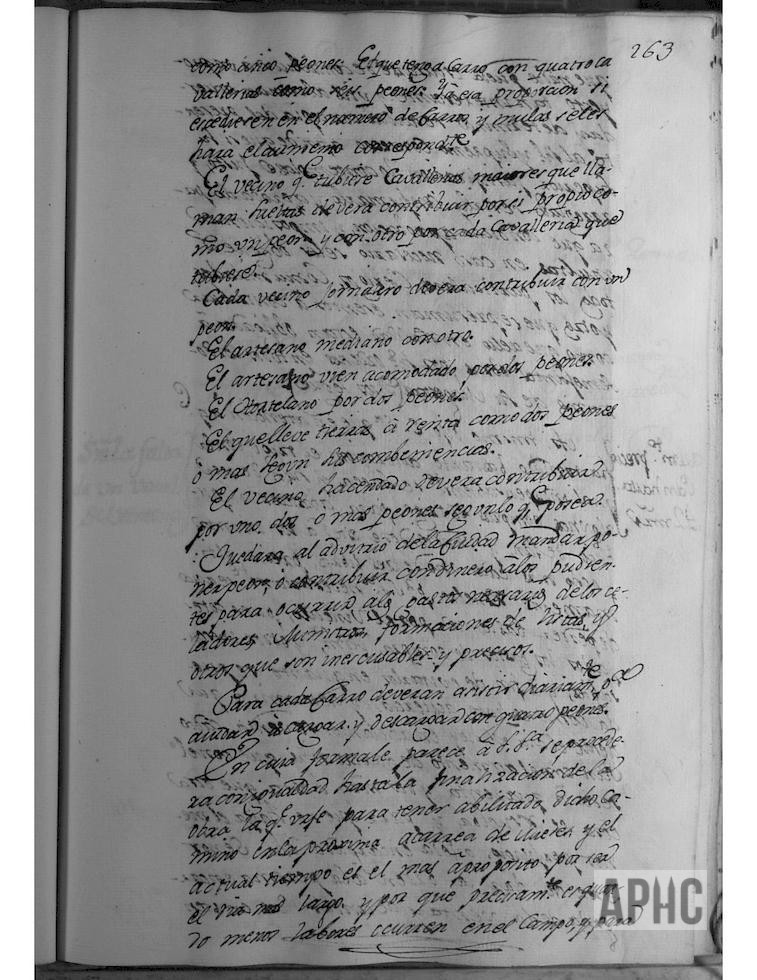 263
como cinco peones. El que tenga Carro con quatro ca
vallerias como seis peones. Y a esa proporcion si
excedieren en el numero de Carros y mulas se les
hara el aumento correspondte
El vecino qe tubiere Cavallerias maiores que lla-
man sueltas devera contribuir por si propio co-
mo un peon y con otro por cada Cavalleria que
tubiere.
Cada vecino jornalero devera contribuir con un
peon.
El artesano mediano con otro.
El artesano vien acomodado por dos peones.
El Ortelano por dos peones
El que lleve tierras à renta como dos peones
ò mas segun sus combeniencias.
El vecino hacendado devera contribuir
por uno, dos, ò mas peones segun lo qe posea.
Quedara al advitrio de la Ciudad mandar po-
ner peon, ò contribuir con dinero a los pudien-
tes para ocurrir a los gastos nezesarios de los ce-
ladores, Ministros, formaciones de listas, y
otros que son inexcusables y precisos.
Para cada Carro deveran asistir diariamte
aiudar à cargar y descargar con quatro peones.
En cuia forma le parece à S. Sa. se procede-
ra con igualdad hasta la finalizacion de la
obra la qe urje para tener abilitado dicho Ca-
mino en la proxima acarrea de mieses y el
actual tiempo es el mas aproposito por ser
el dia mas largo y por que precisamte es quan-
do menos labores ocurren en el Campo, y para
APHC